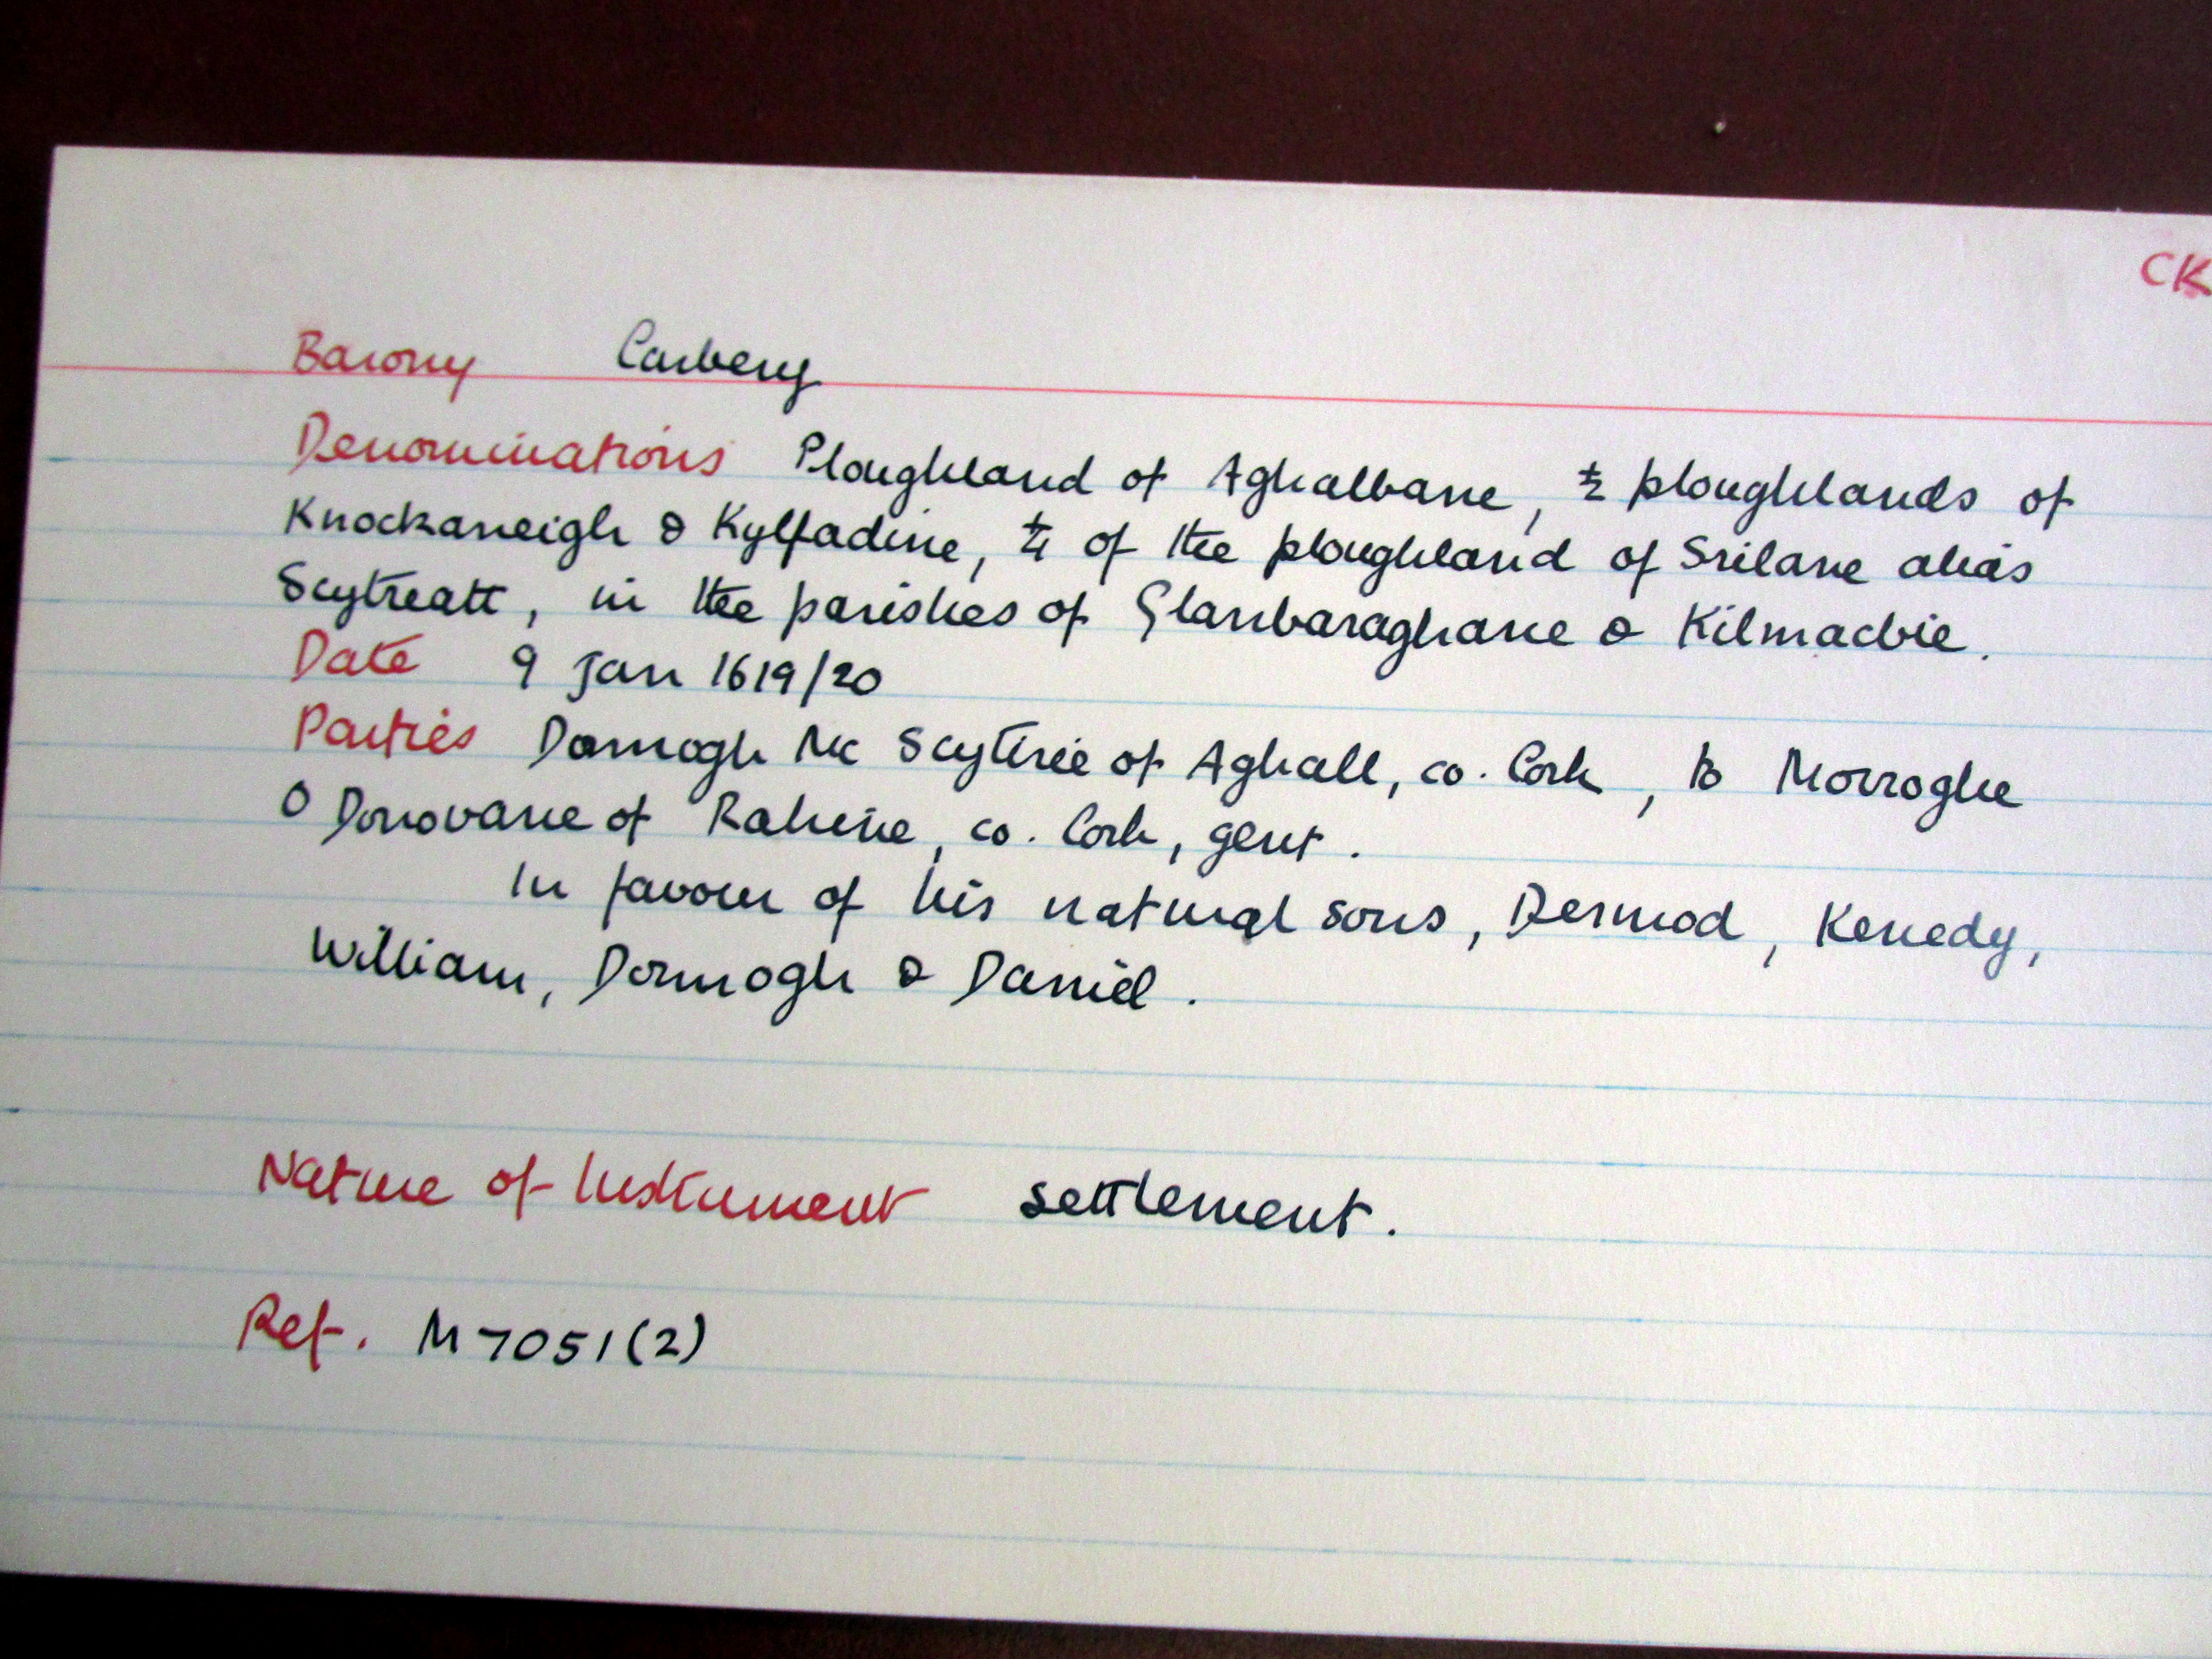 CK
Barony Carbery
Denominations Ploughland of Aghalbane, ½ ploughlands of
Knockaneigh & Kylfadine, ¼ of the ploughland of Srilane alias
Scytreatt, in the parishes of Glanbaraghane & Kilmacbie.
Date 9 Jan 1619/20
Parties Donnogh Mc Scytirie of Aghall, co. Cork, to Morroghe
O Donovane of Rahine, co. Cork, gent.
In favour of his natural sons, Dermod, Kenedy,
William, Donnogh & Daniel.
Nature of Instrument settlement.
Ref. M7051(2)